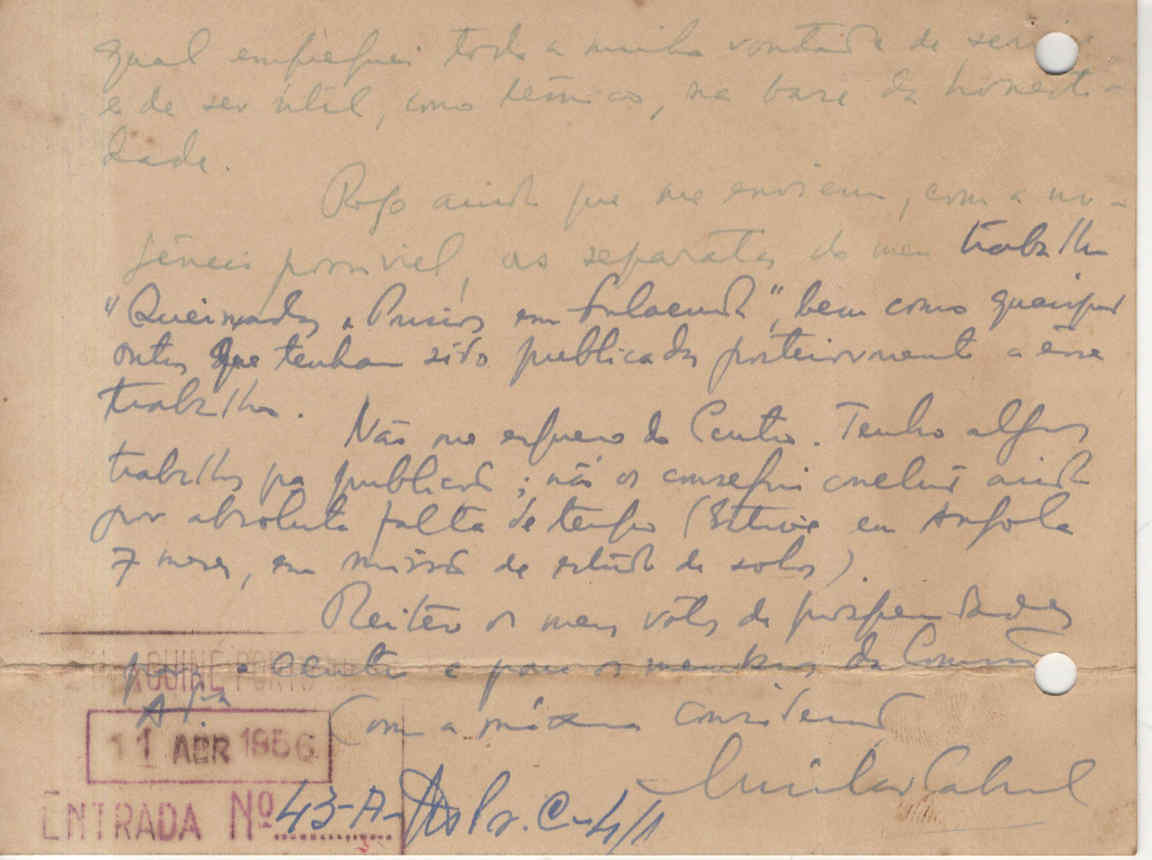 qual empreguei toda a minha vontade de servir
e de ser útil, como técnico, na base da honesti-
dade.
Rogo ainda que me enviem, com a ur-
gência possível, as separatas do meu trabalho
"Queimadas e Pousios em Fulacunda", bem como quaisquer
outras que tenham sido publicadas posteriormente a esse
trabalho.
Não me esqueço do Centro. Tenho alguns
trabalhos pa publicar; não os consegui concluir ainda
por absoluta falta de tempo (Estive em Angola
7 meses, em missão de estudo de solos).
Reitero os meus votos de prosperidades
para o Centro e para os membros da Comissão
Com a máxima consideração
Amílcar Cabral
GUINÉ PORTUGUESA
11 ABR 1956
ENTRADA Nº 43-A